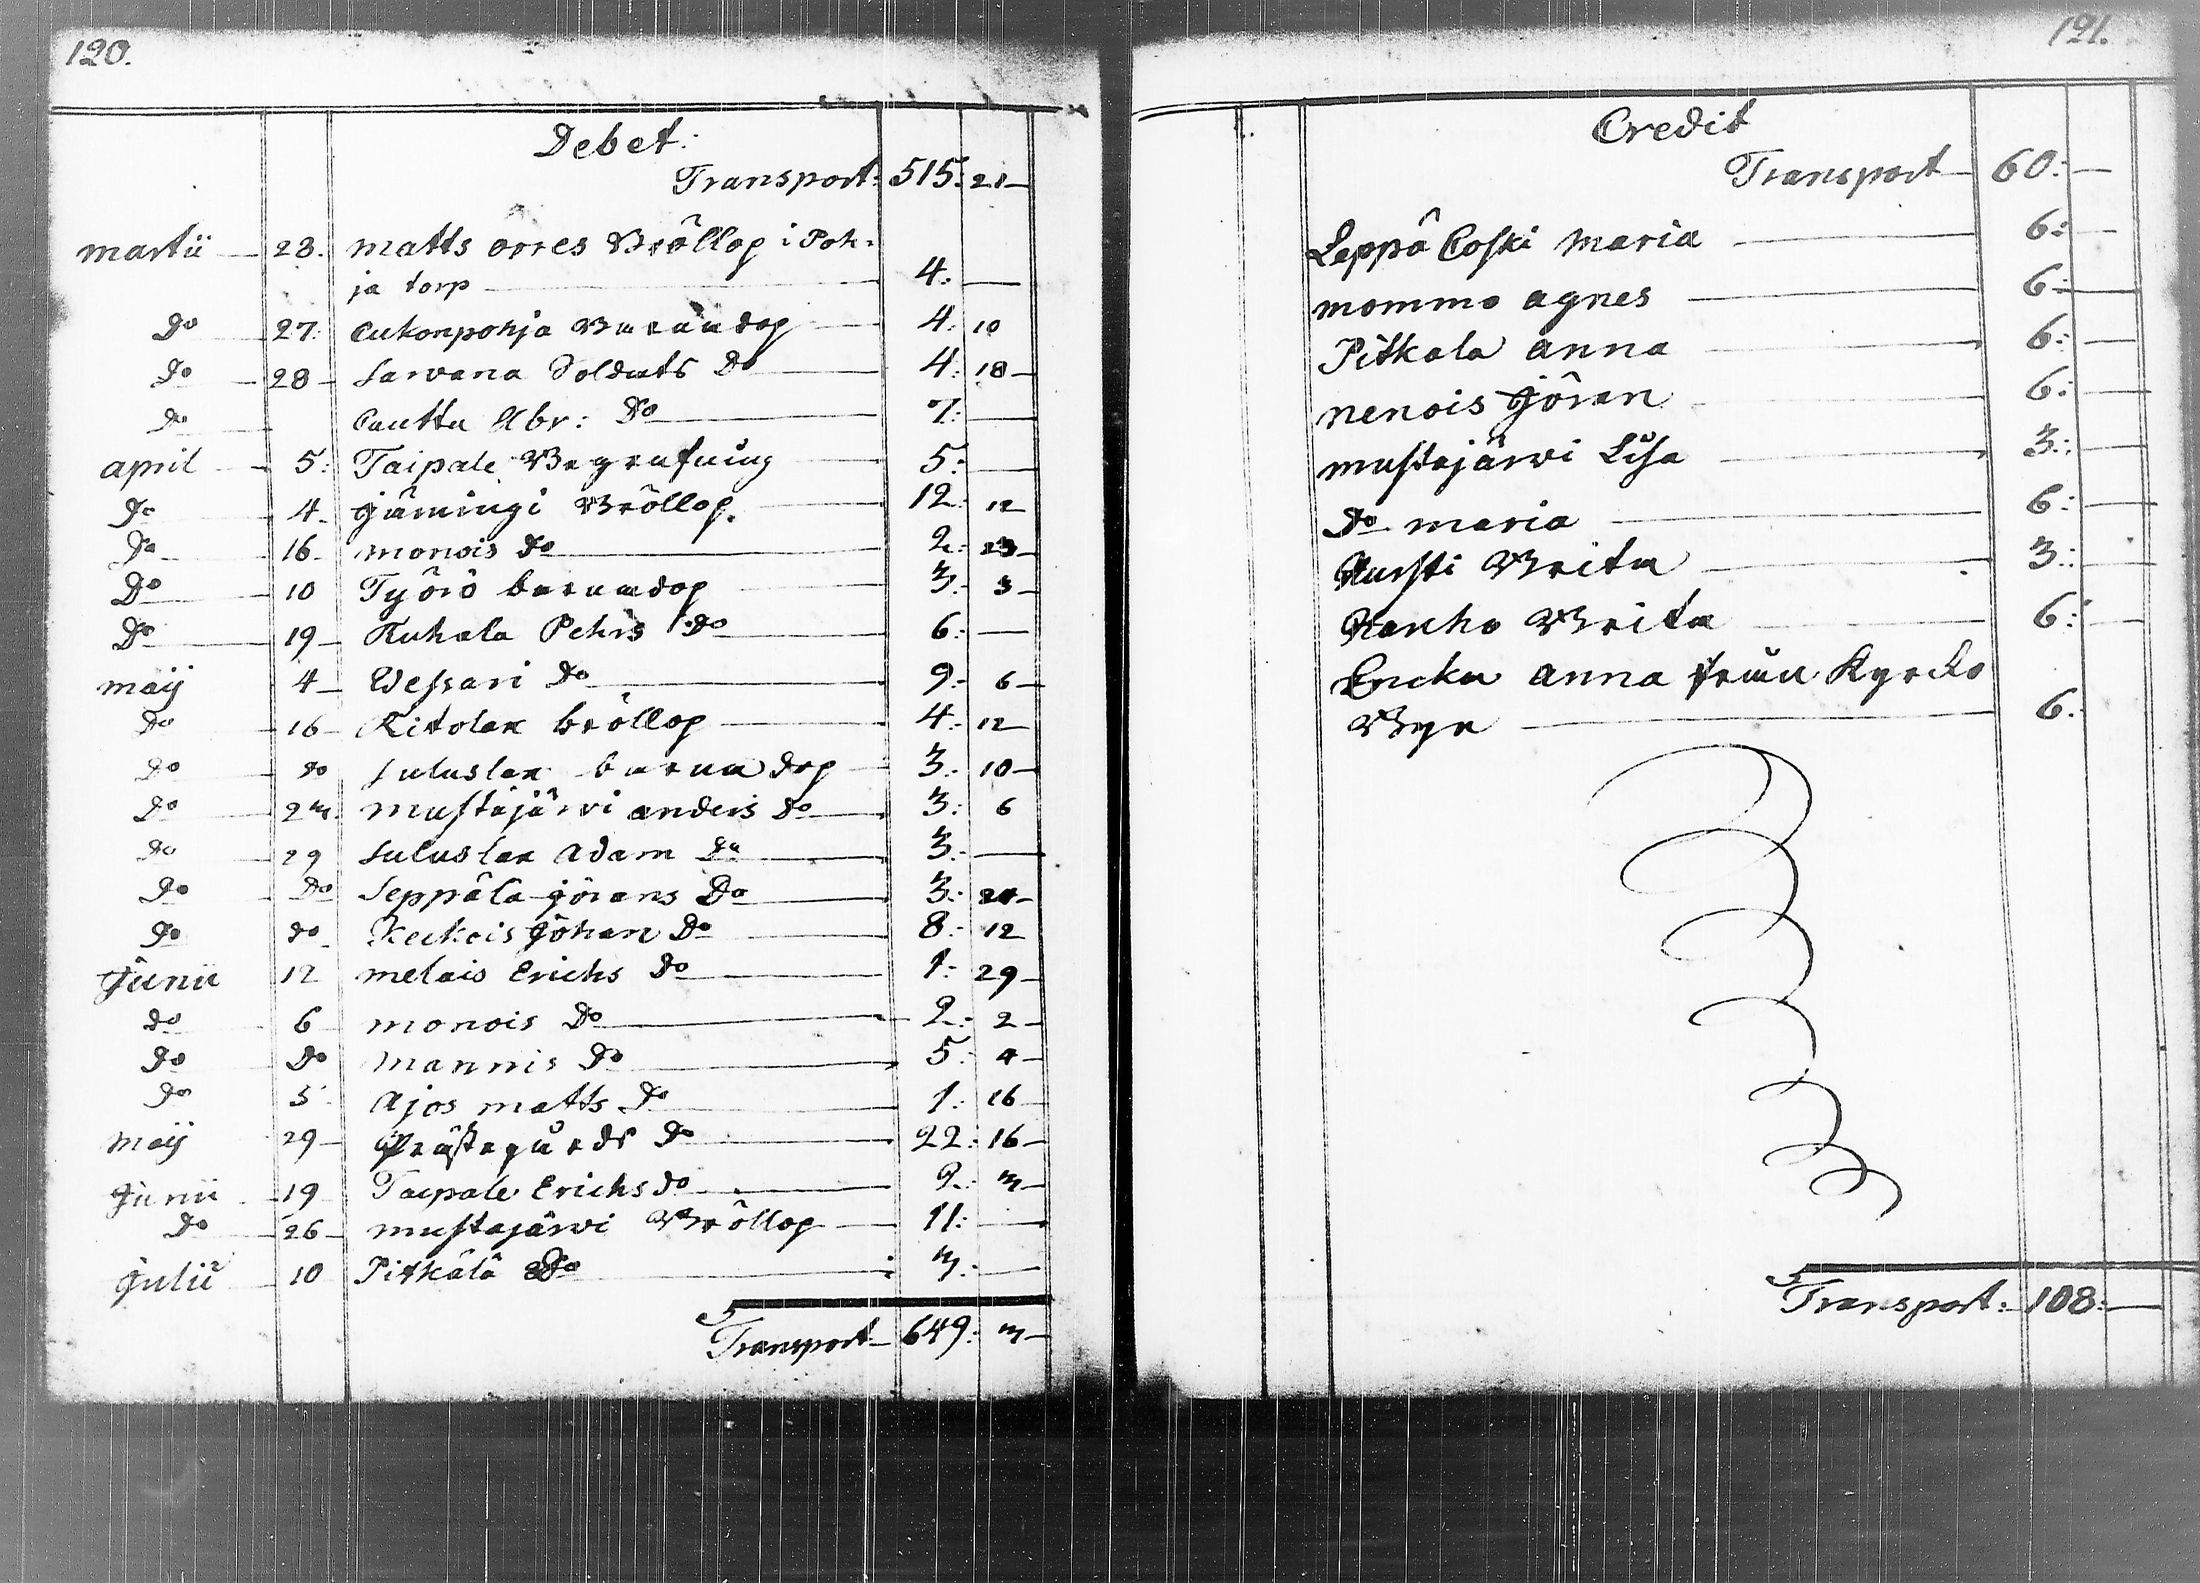 120.
Debet:
Transport: 515: 21
Martii 23. Matts Orres Bröllop i Poh-
ja torp 4:
Do 27: Cukonpohja Barndop 4. 10
Do 28 Sarvana Soldats Do 4: 18
Do Cautta Abr: Do 7:
April 5: Taipale Begrafning 5:
Do 4. Jämingi Bröllop. 12: 12
Do 16 Monois Do 2: 23
Do 10 Työrö barnadop 3: 3
Do 19 Kuhala Pehrs Do 6:
Maij 4 Wessari Do 9: 6
Do 16 Kitolax bröllop 4: 12
Do Do Suluslax barnadop 3: 10
Do Mustajärvi Anders Do 3: 6
Do 29 Suluslax Adam Do 3:
Do Do Seppälä Jörans Do 3:
Do Do Keckois Johan Do 8: 12
Junii 12 Melais Erichs Do 1: 29
Do 6 Monois Do 2: 2
Do Do Mannis Do 5: 4
Do 5 Ajos Matts Do 1: 16
Maij 29 Prästegårds Do 22: 16
Junii 19 Taipale Erichs Do 2: 3
Do 26 Mustajärvi Bröllop 11:
Julii 10 Pitkälä Do 3:
Transport 649: 3
121.
Credit
Transport 60:
Leppä Coski Maria 6:
Mommo Agnes 6:
Pitkala Anna 6:
Nenois Jöran 6:
Mustajärvi Lisa 3:
Do Maria 6:
Brita 3:
Brita 6:
Encku Anna från Kyrcko
Byn 6.
Transport: 108: